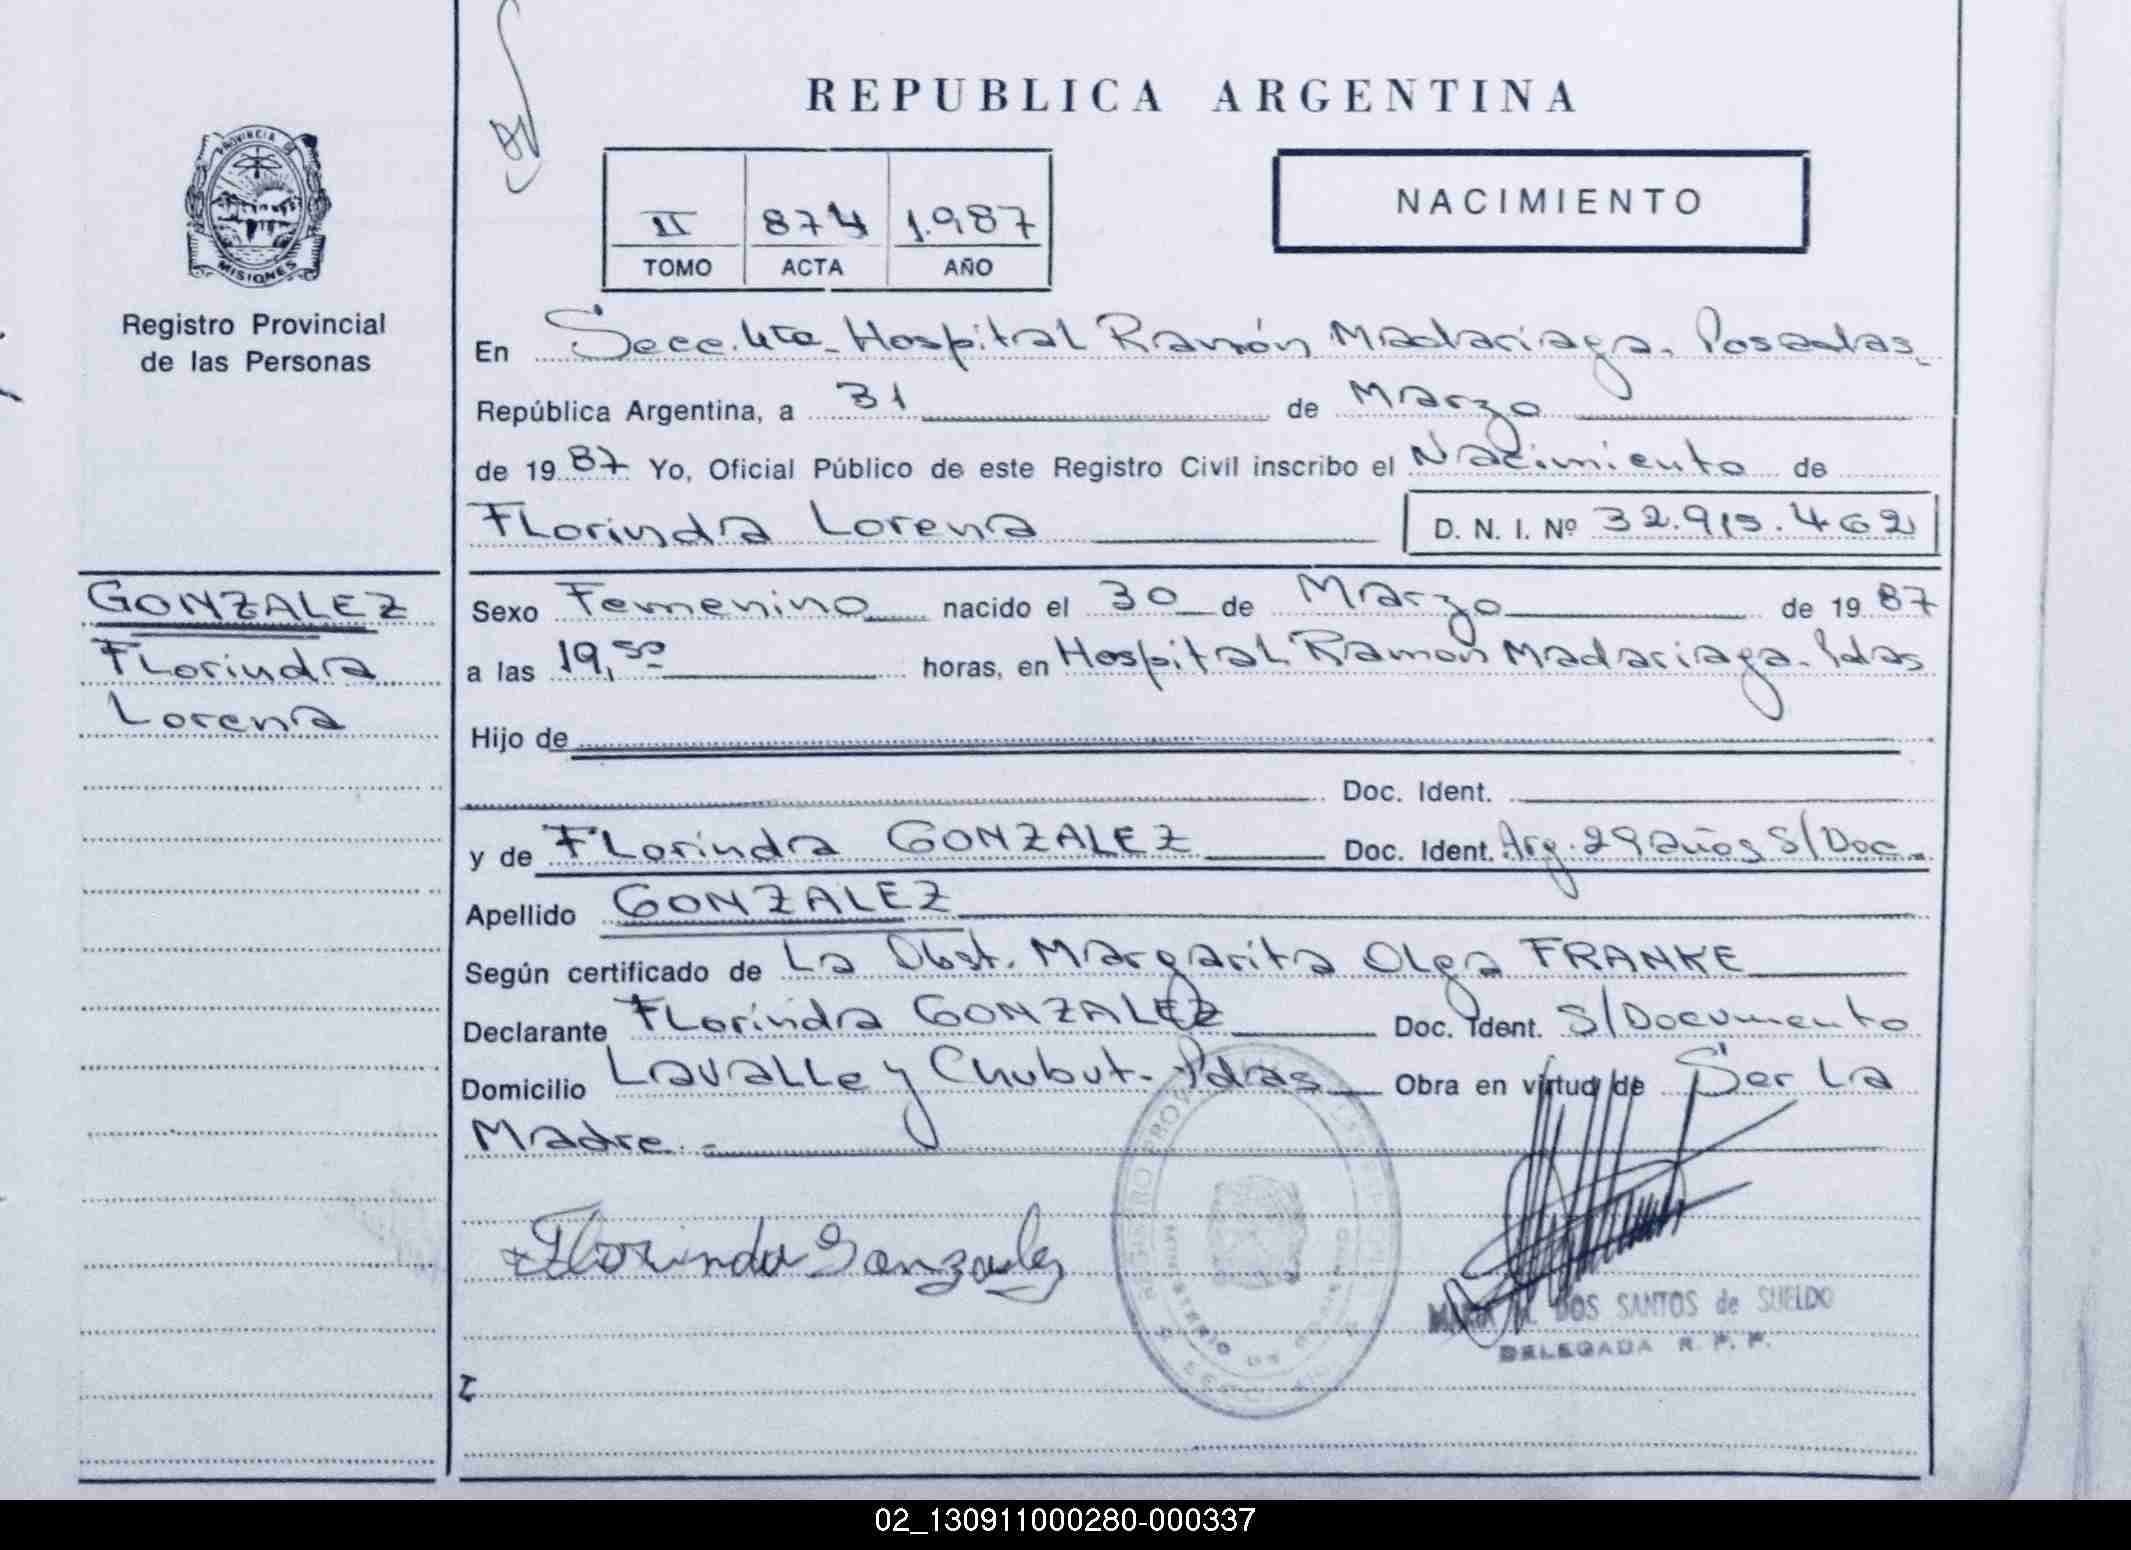 REPUBLICA ARGENTINA
PROVINCIA DE
MISIONES
Registro Provincial
de las Personas
II 874 1.987
TOMO ACTA AÑO
NACIMIENTO
En Secc. 4ta - Hospital Ramón Madariaga. Posadas
República Argentina, a 31 de Marzo
de 1987 Yo, Oficial Público de este Registro Civil inscribo el Nacimiento de
Florinda Lorena D. N. I. Nº 32.915.462
GONZALEZ
Florinda
Lorena
Sexo Femenino nacido el 30 de Marzo de 1987
a las 19,50 horas, en Hospital Ramon Madariaga. Pdas
Hijo de
Doc. Ident.
y de Florinda GONZALEZ Doc. Ident. Arg. 29 años S/Doc.
Apellido GONZALEZ
Según certificado de La Obst. Margarita Olga FRANKE
Declarante Florinda GONZALEZ Doc. Ident. S/Documento
Domicilio Lavalle y Chubut - Pdas Obra en virtud de Ser La
Madre.
Florinda Gonzalez
DOS SANTOS de SUELDO
DELEGADA R. P. P.
02_130911000280-000337